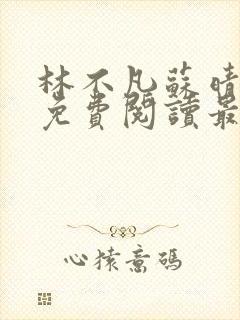 林不凡蘇晴
免費閱讀最
心猿意碼